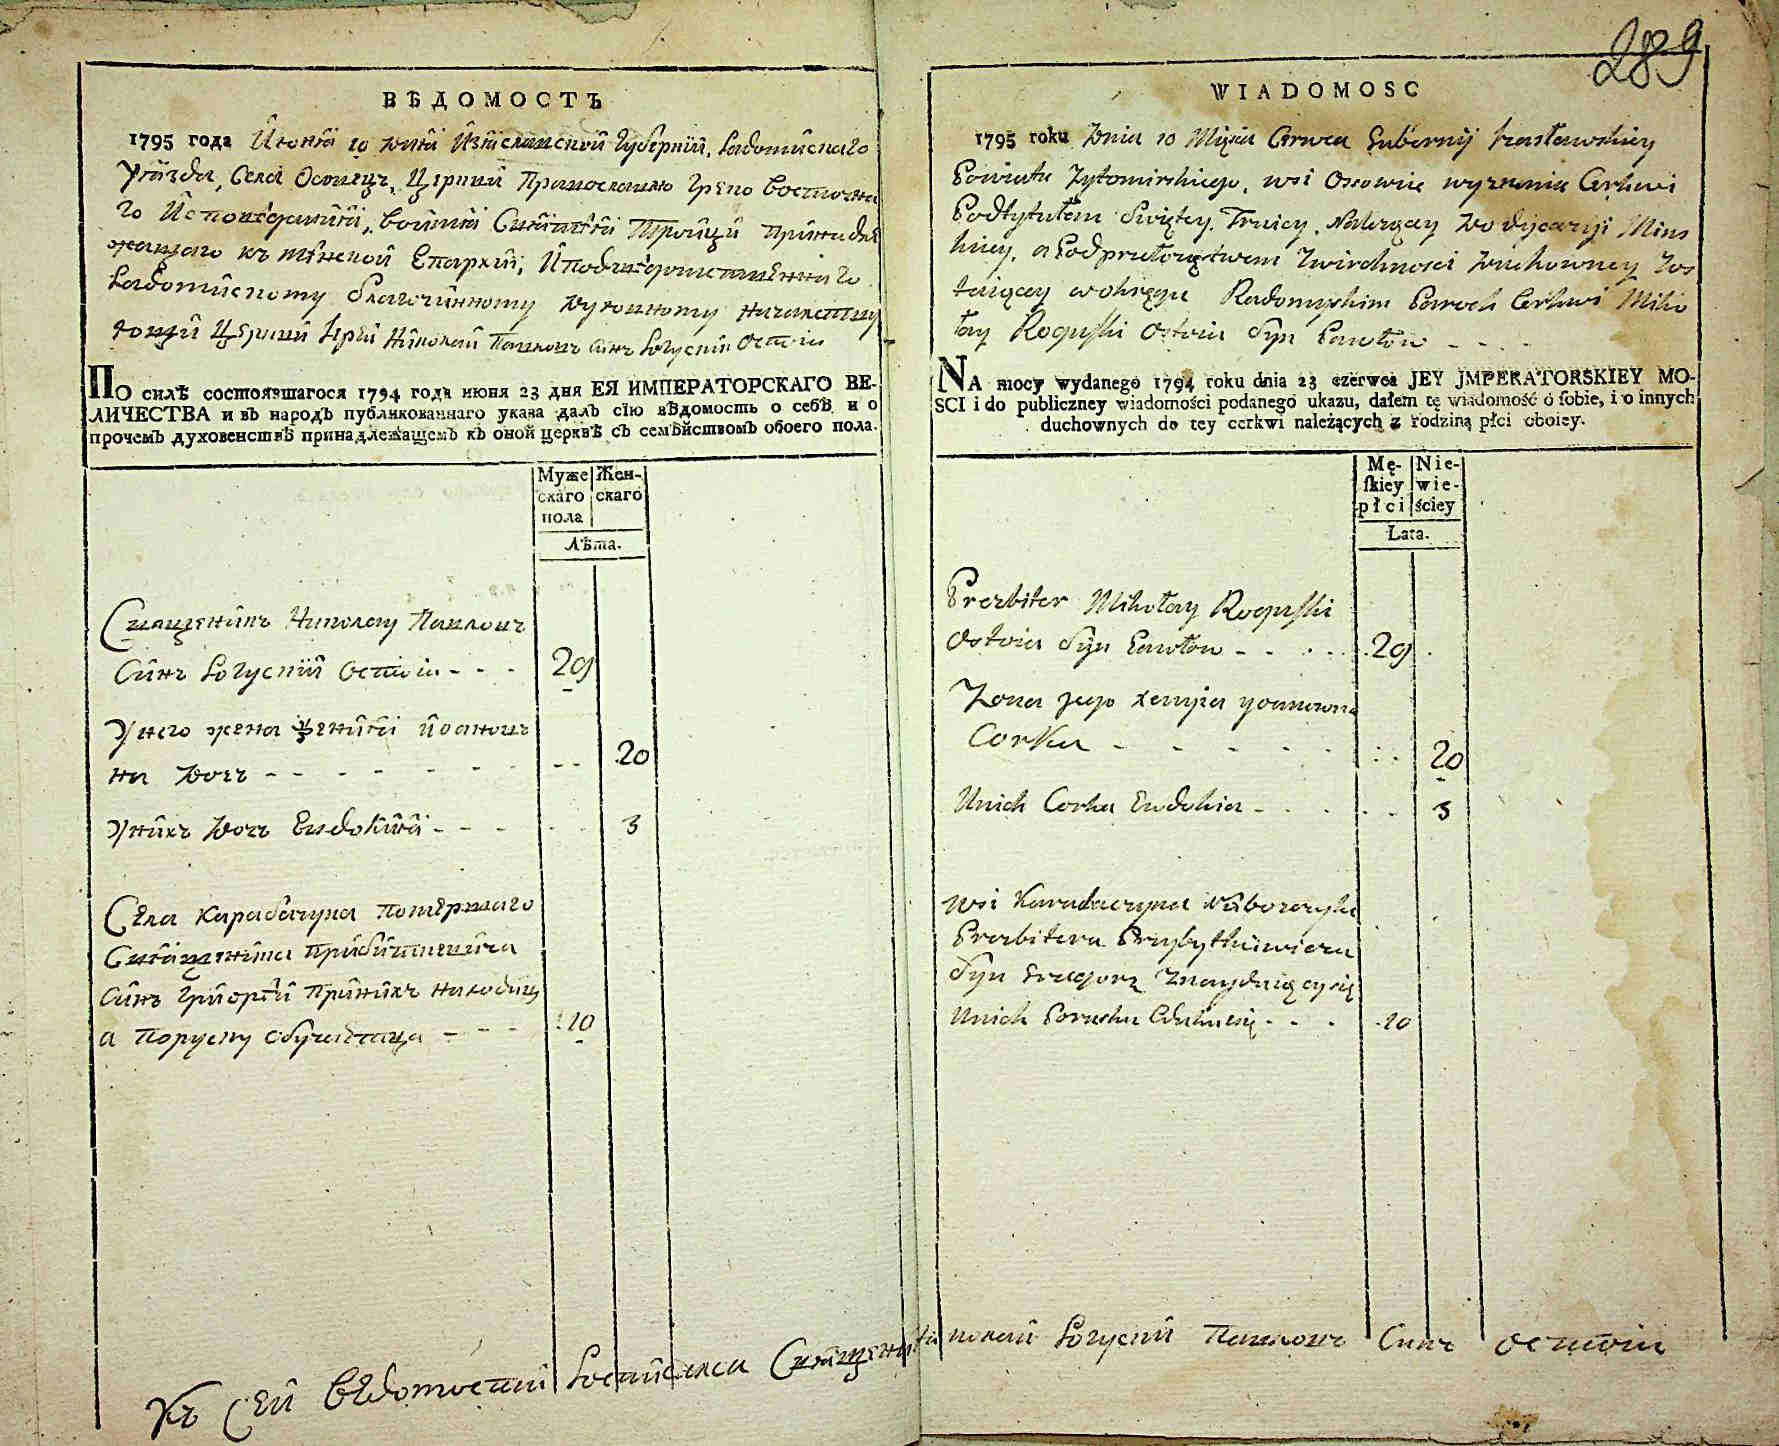 289
ВѢДОМОСТЬ
1795 года Июня 10 дня Изяславской Губернии, Радомиского
Уезда, Села Осовец, Церкви Православно Греко восточна
го Исповедания, во имя Святия Тройци принадле
жащаго къ Минской Епархии, и подведомственнаго
Радомискому благочинному духовному началству
тощи Церкви Иерей Николай Павловъ Синъ Рогуский Остоя
ПО силѣ состоявшагося 1794 года июня 23 дня ЕЯ ИМПЕРАТОРСКАГО ВЕ-
ЛИЧЕСТВА и въ народъ публикованнаго указа далъ сїю вѣдомость о себѣ и о
прочемъ духовенствѣ принадлежащемъ къ оной церквѣ съ семѣйствомъ обоего пола.
Муже Жен-
скаго скаго
пола
Лѣта.
Священикъ Николай Павловъ
Синъ Рогуский Остоя - - - 29
У него жена Ѯения Иоанов
на дочь - - - - - - - - 20
У нихъ дочь Евдокия - - - - - 3
Села Карабачуна померлаго
Священика Прибиткевича
Синъ Григорий при нихъ находиц
а поруску обучаетца - - - 10
WIADOMOSC
1795 roku Dnia 10 Mięsia Czerwca Gubernij Izasławskiey
Powiatu Zytomirskiego, wsi Osowiec wyznania Cerkwi
Podtytułem Swiętey Truicy, Nalezącey do dyecezyi Mins
kiey, a Podprutorięstwem Zwirchnosci Duchowney Zos
taiącey w okręgu Radomyskim Paroch Cerkwi Miko
łay Roguski Ostoia Syn Pawłow - - - -
NA mocy wydanego 1794 roku dnia 23 czerwca JEY JMPERATORSKIEY MO-
SCI i do publiczney wiadomości podanego ukazu, dałem tę wiadomość o sobie, i o innych
duchownych do tey cerkwi należących z rodziną płci oboiey.
Mę- Nie-
skiey wie-
płci ściey
Lata.
Prezbiter Mikołay Roguski
Ostoia Syn Pawłow - - - - 29
Zona jego Xenija yoanowna
Corka - - - - - - 20
Unich Corka Eudokia - - - - - 3
wsi Karabaczyna Niboszczyka
Prezbitera Przybytkiewicza
Syn Grzegorz Znayduiącysię
Unich Porusku Uczisię - - - 10
Къ Сей вѣдомости Росписался Священикъ Николай Рогуский Павловъ Синъ Остоя